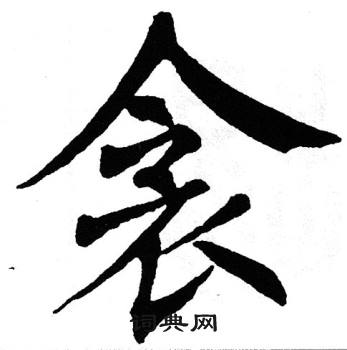 衾
词典网